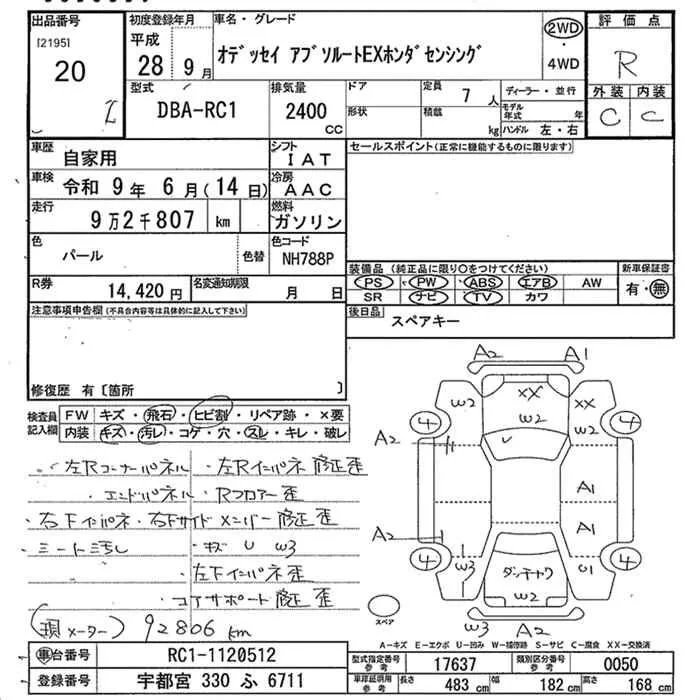 出品番号
[2195]
20
初度登録年月
平成
28 9月
車名・グレード
オデッセイ アブソルートEXホンダセンシング
2WD
・
4WD
評価点
R
外装 内装
C C
型式
DBA-RC1
排気量
2400
CC
ドア
形状
定員
7 人
積載
kg
ディーラー・並行
モデル年式 年
ハンドル 左・右
車歴 自家用
シフト IAT
セールスポイント(正常に機能するものに限ります)
車検 令和 9年 6月(14日)
冷房 AAC
走行 9万2千807 km
燃料 ガソリン
色 パール 色替
色コード NH788P
装備品 (純正品に限り○をつけてください)
新車保証書
PS PW ABS エアB AW
有・無
SR ナビ TV カワ
R券 14,420円
名変通知期限 月 日
後日品 スペアキー
注意事項申告欄 (不具合内容等は具体的に記入して下さい)
修復歴 有〔箇所 〕
検査員記入欄
FW キズ・飛石・ヒビ割・リペア跡・×要
内装 キズ・汚レ・コゲ・穴・スレ・キレ・破レ
・左Rコーナーパネル ・左Rインパネ 修正歪
・エンドパネル・Rフロアー歪
・右Fインパネ・右Fサイドメンバー修正歪
・シート汚し ・キズ U W3
・左Fインパネ歪
・コアサポート修正歪
(現メーター) 92806 km
A2 A1
W2 XX XX
W2 W2
4 4
A2
A1
A1
A2
4 4
W3 U1
ダンチヤワ
W2
W3 A2
スペア
A-キズ E-エクボ U-凹み W-補修跡 S-サビ C-腐食 XX-交換済
車台番号 RC1-1120512
登録番号 宇都宮 330 ふ 6711
型式指定番号 参考 17637
類別区分番号 参考 0050
車庫証明用 参考 長さ 483 cm 幅 182 cm 高さ 168 cm